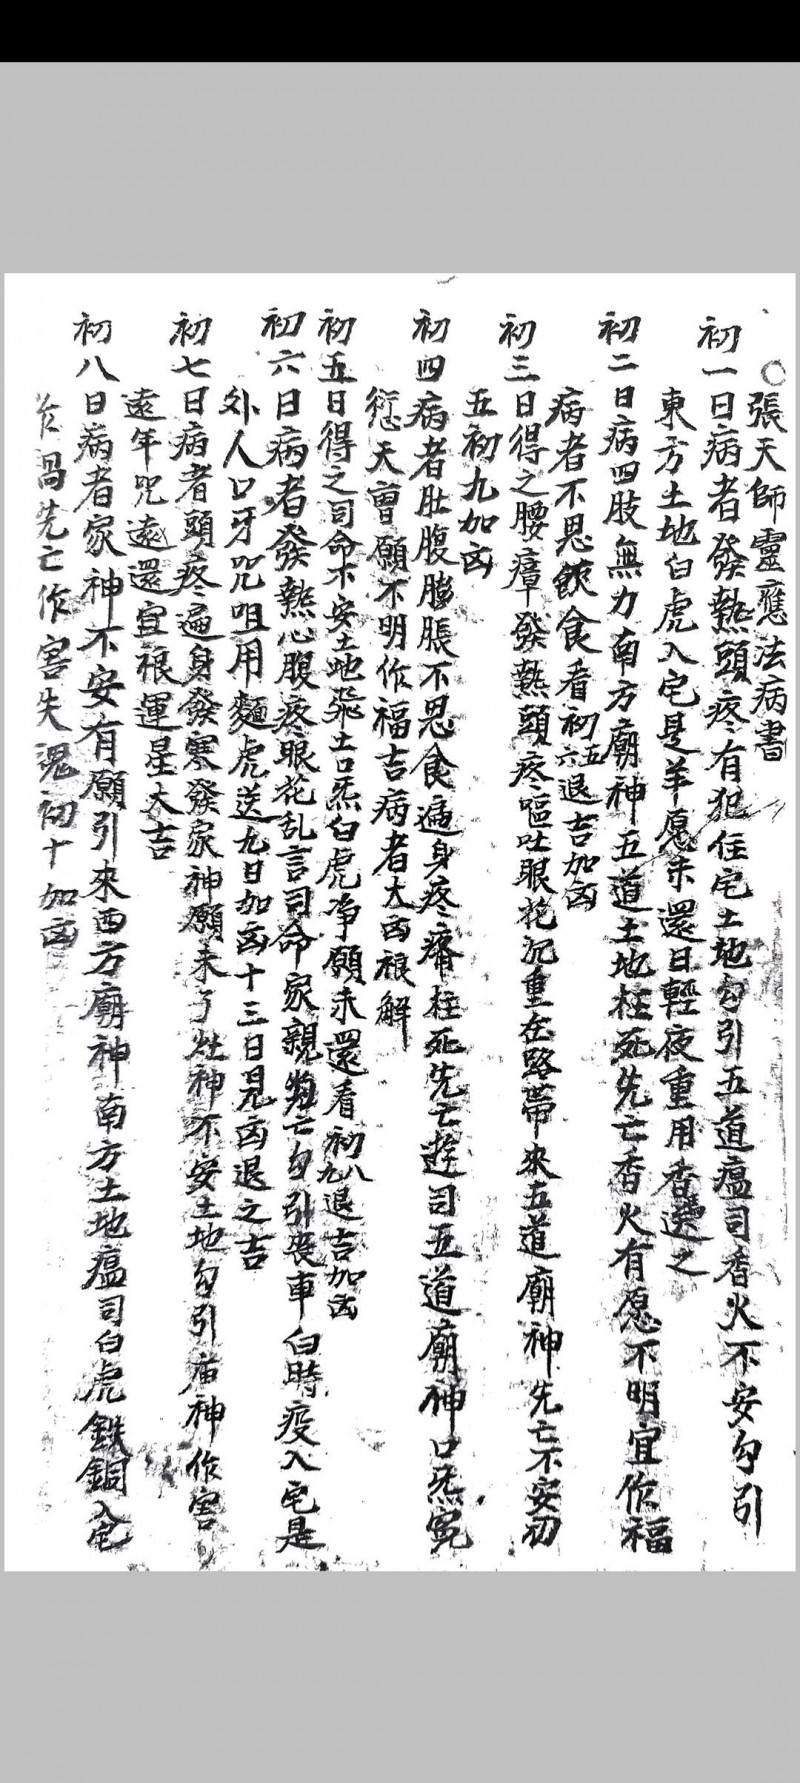 ○張天師靈應法病書
初一日病者發熱頭疼有犯住宅土地勾引五道瘟司香火不安勾引
東方土地白虎入宅是羊愿未還日輕夜重用香送之
初二日病四肢無力南方廟神五道土地枉死先亡香火有愿不明宜作福
病者不思飲食看初五六退吉加凶
初三日得之腰瘴發熱頭疼嘔吐眼花沉重在路帶來五道廟神先亡不安初
五初九加凶
初四病者肚腹膨脹不思食遍身疼痛枉死先亡遊司五道廟神口炁冤
愆天曹願不明作福吉病者大凶禳解
初五日得之司命不安土地飛土口炁白虎净願未還看初八九退吉加凶
初六日病者發熱心腹疼眼花乱言司命家親勾引喪車白時疫入宅是
外人口牙咒咀用麵虎送九日加凶十三日見凶退之吉
初七日病者頭疼遍身發寒發家神願未了灶神不安土地勾引庙神作害
遠年咒遠還宜禳運星大吉
初八日病者家神不安有願引來西方廟神南方土地瘟司白虎鉄銅入宅
作禍先亡作害失混初十加凶